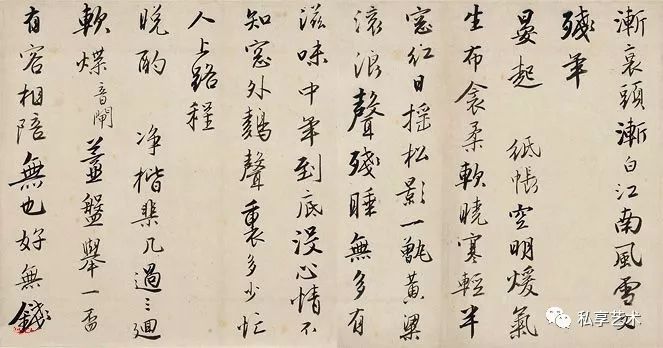 漸衰頭漸白江南風雪
殘年
晏起 紙帳空明煖氣
生布衾柔軟曉寒輕半
窓紅日搖松影一甑黃粱
滾浪聲殘睡無多有
滋味中年到底沒心情不
知窓外鷄聲裏多少忙
人上路程
晚酌 淨楷棐几過三迴
軟煠音閘薑盤舉一盃
有客相陪無也好無錢
私享艺术